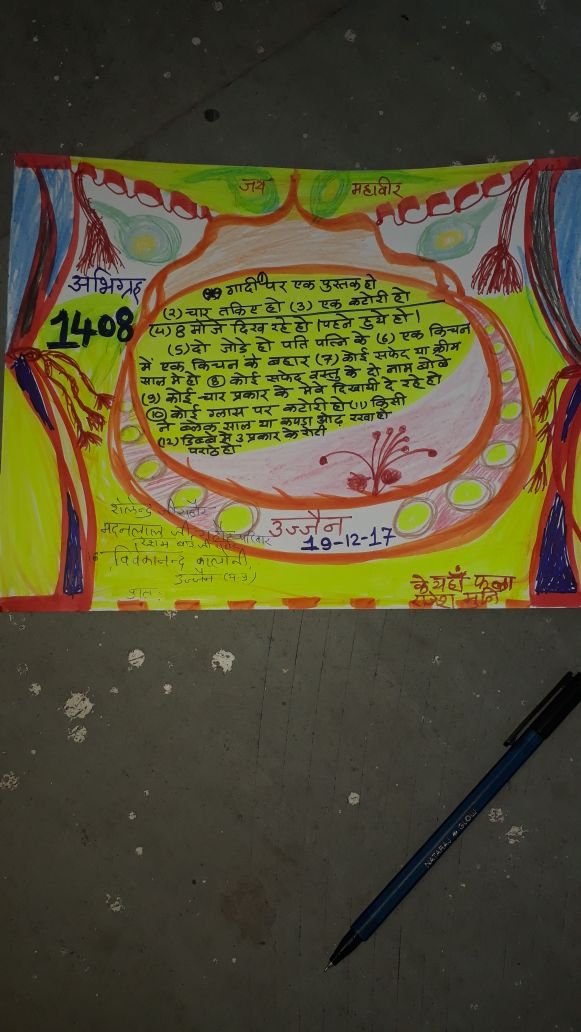 जय महावीर
अभिग्रह
1408
गादी पर एक पुस्तक हो
(२) चार तकिए हो (3) एक कटोरी हो
(4) 8 मोजे दिख रहे हो । पहने हुये हो ।
(5) दो जोडे हो पति पत्नि के (6) एक किचन
में एक किचन के बहार (7) कोई सफेद या क्रीम
साल मे हो (8) कोई सफेद वस्तु के दो नाम बोले
(9) कोई चार प्रकार के मेवे दिखायी दे रहे हो
(10) कोई ग्लास पर कटोरी हो (11) किसी
ने ब्लेक साल या कपडा ओढ रखा हो
(12) डिब्बे मे 3 प्रकार के रोटी
पराठे हो
शेलेन्द्र जी
मदनलाल जी परिवार
विवेकानन्द कालोनी,
उज्जैन
उज्जैन
19-12-17
के यहाँ फला
राजेश मुनि
NATARAJ GLOW